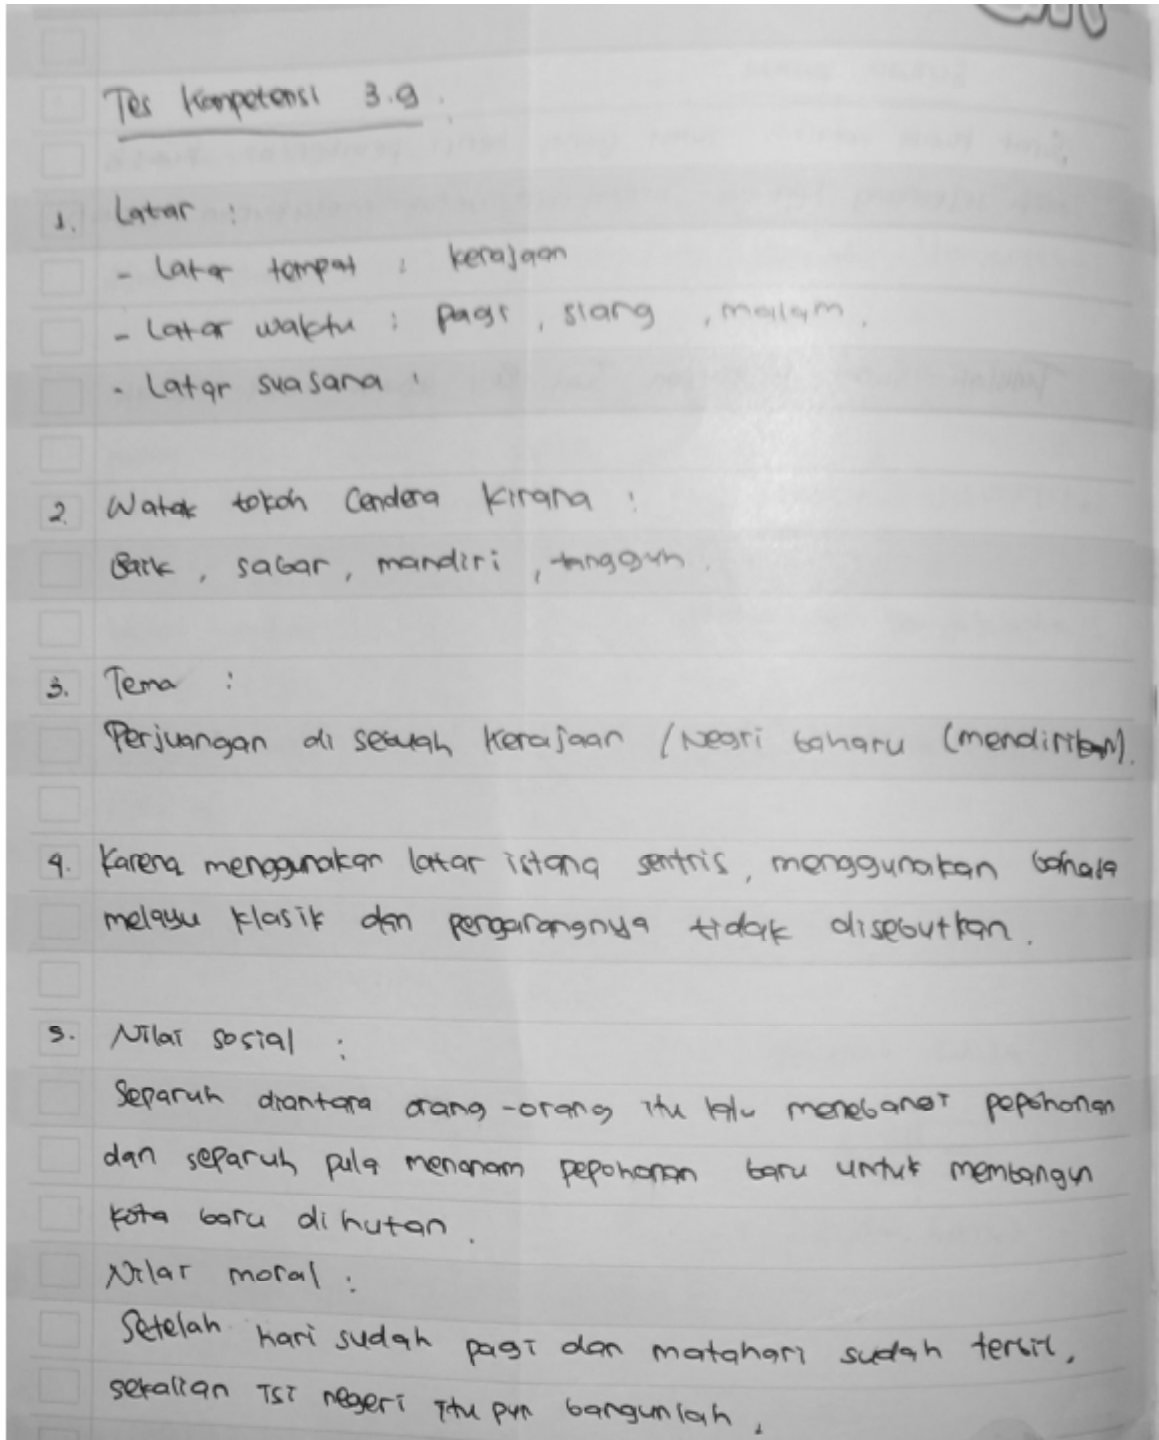 Tes Kompetensi 3.9.
1. Latar :
- Latar tempat : kerajaan
- Latar waktu : pagi, siang, malam.
- Latar suasana :
2. Watak tokoh Cendera Kirana :
Baik, sabar, mandiri, tangguh.
3. Tema :
Perjuangan di sebuah Kerajaan / Negri baharu (mendirikan).
4. Karena menggunakan latar istana sentris, menggunakan bahasa
melayu klasik dan pengarangnya tidak disebutkan.
5. Nilai sosial :
Separuh diantara orang-orang itu lalu menebangi pepohonan
dan separuh pula menanam pepohonan baru untuk membangun
kota baru dihutan.
Nilai moral :
Setelah hari sudah pagi dan matahari sudah terbit,
sekalian isi negeri itu pun bangunlah,